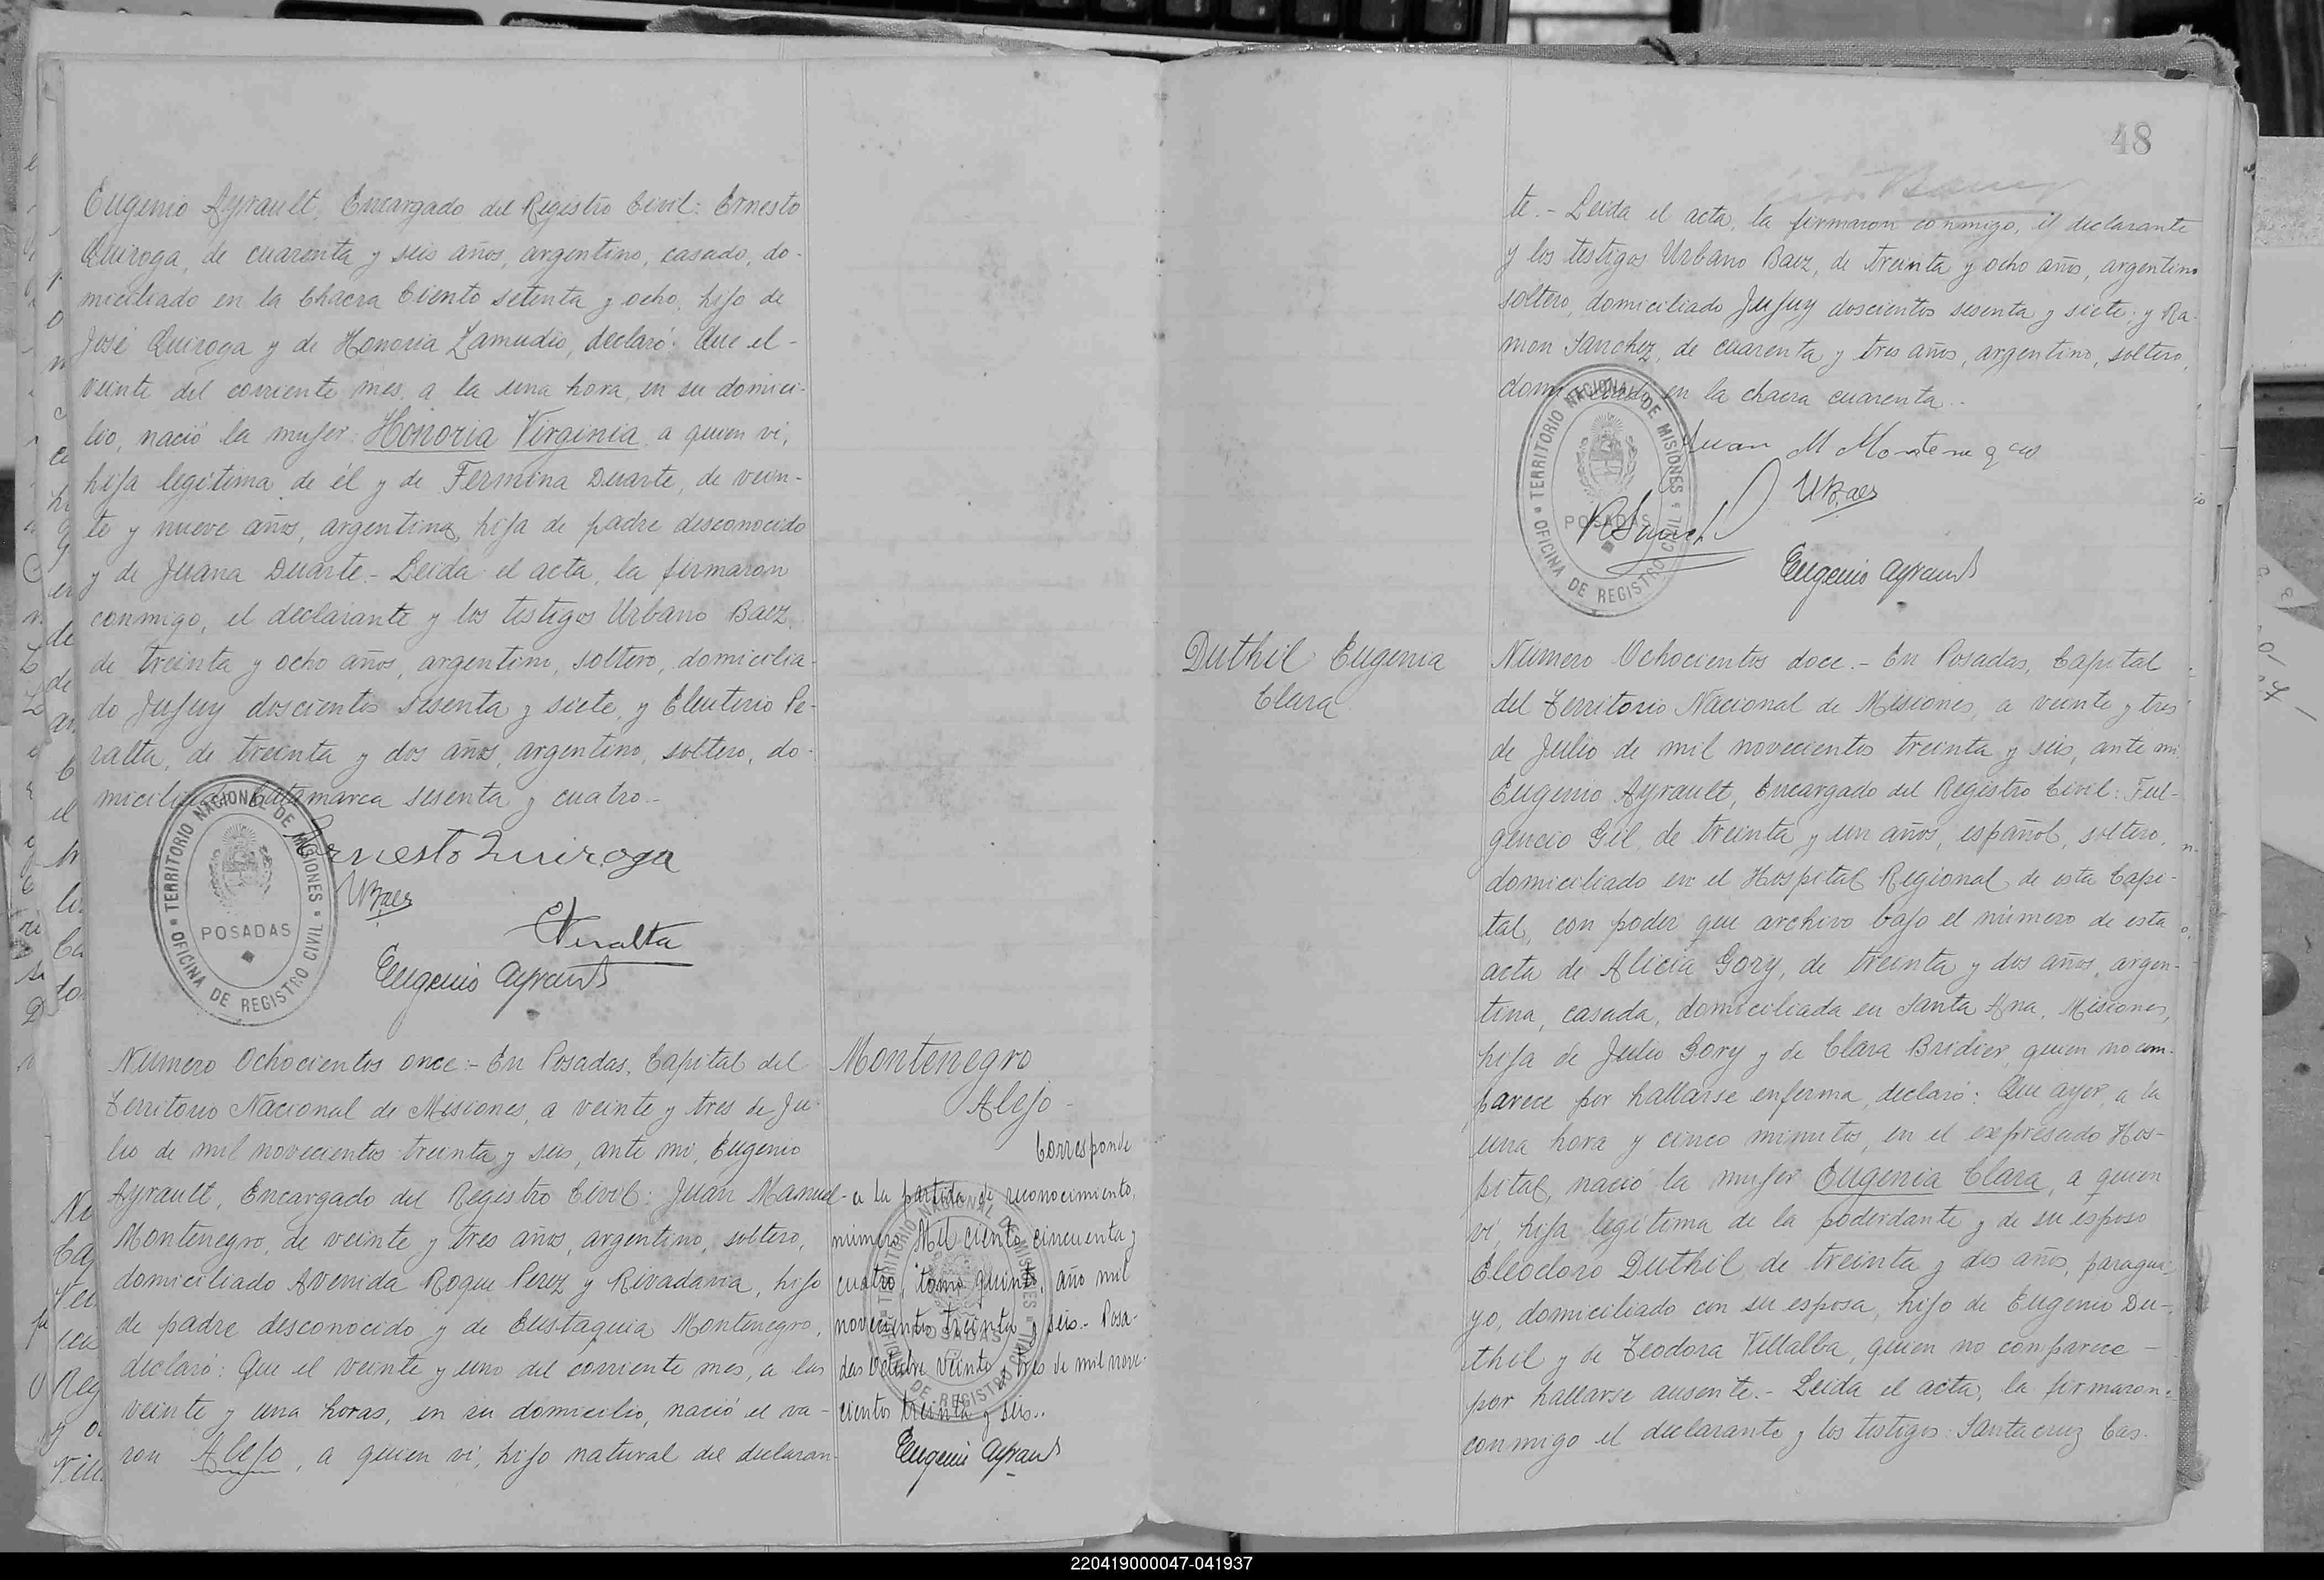 Eugenio Ayrault, Encargado del Registro Civil: Ernesto
Quiroga, de cuarenta y seis años, argentino, casado, do-
miciliado en la Chacra Ciento setenta y ocho, hijo de
José Quiroga y de Honoria Zamudio, declaró: Que el -
veinte del corriente mes, a la una hora, en su domici-
lio, nació la mujer: Honoria Virginia, a quien vi,
hija legítima de él y de Fermina Duarte, de vein-
te y nueve años, argentina, hija de padre desconocido
y de Juana Duarte.- Leida el acta, la firmaron
conmigo, el declarante y los testigos Urbano Baez,
de treinta y ocho años, argentino, soltero, domicilia-
do Jujuy doscientos sesenta y siete, y Eleuterio Pe-
ralta, de treinta y dos años, argentino, soltero, do-
miciliado Catamarca sesenta y cuatro.-
Ernesto Quiroga
UBaez
EPeralta
Eugenio Ayrault
TERRITORIO NACIONAL DE MISIONES
POSADAS
OFICINA DE REGISTRO CIVIL
Numero Ochocientos once:- En Posadas, Capital del
Territorio Nacional de Misiones, a veinte y tres de Ju-
lio de mil novecientos treinta y seis, ante mi, Eugenio
Ayrault, Encargado del Registro Civil: Juan Manuel
Montenegro, de veinte y tres años, argentino, soltero,
domiciliado Avenida Roque Perez y Rivadavia, hijo
de padre desconocido y de Eustaquia Montenegro,
declaró: Que el veinte y uno del corriente mes, a las
veinte y una horas, en su domicilio, nació el va-
ron Alejo, a quien vi, hijo natural del declaran-
Montenegro
Alejo -
Corresponde
a la partida de reconocimiento,
número Mil ciento cincuenta y
cuatro, tomo quinto, año mil
novecientos treinta y seis.- Posa-
das Octubre veinte y tres de mil nove-
cientos treinta y seis..
Eugenio Ayrault
TERRITORIO NACIONAL DE MISIONES
POSADAS
OFICINA DE REGISTRO CIVIL
48
te.- Leida el acta, la firmaron conmigo, el declarante
y los testigos Urbano Baez, de treinta y ocho años, argentino
soltero, domiciliado Jujuy doscientos sesenta y siete; y Ra-
mon Sanchez, de cuarenta y tres años, argentino, soltero,
domiciliado en la chacra cuarenta..
Juan M Montenegro
UBaez
RSanchez
Eugenio Ayrault
TERRITORIO NACIONAL DE MISIONES
POSADAS
OFICINA DE REGISTRO CIVIL
Duthil Eugenia
Clara
Numero Ochocientos doce.- En Posadas, Capital
del Territorio Nacional de Misiones, a veinte y tres
de Julio de mil novecientos treinta y seis, ante mi
Eugenio Ayrault, Encargado del Registro Civil: Ful-
gencio Gil, de treinta y un años, español, soltero,
domiciliado en el Hospital Regional de esta Capi-
tal, con poder que archivo bajo el número de esta
acta de Alicia Gory, de treinta y dos años, argen-
tina, casada, domiciliada en Santa Ana, Misiones,
hija de Julio Gory y de Clara Bridier, quien no com-
parece por hallarse enferma, declaró: Que ayer, a la
una hora y cinco minutos, en el expresado Hos-
pital, nació la mujer Eugenia Clara, a quien
vi, hija legítima de la poderdante y de su esposo
Eleodoro Duthil de treinta y dos años, paragua-
yo, domiciliado con su esposa, hijo de Eugenio Du-
thil y de Teodora Villalba, quien no comparece -
por hallarse ausente.- Leida el acta, la firmaron
conmigo el declarante y los testigos: Santacruz Cas-
220419000047-041937